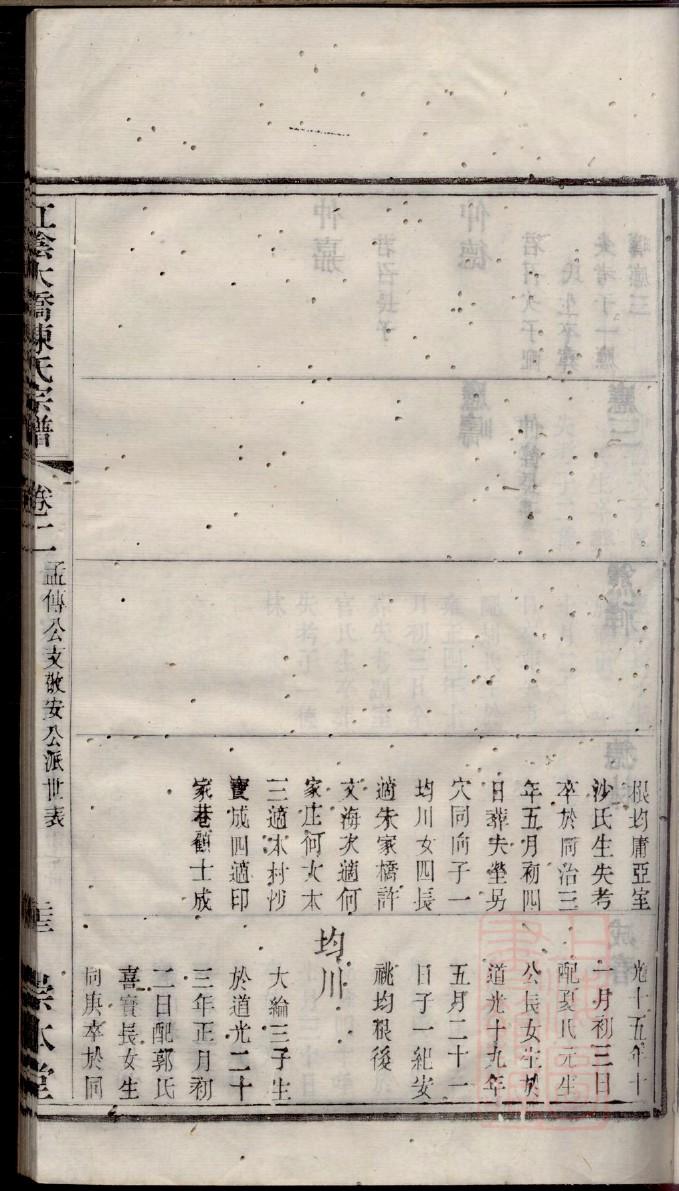 根均庸亞室
沙氏生失考
卒於同治三
年五月初四
日葬夫塋另
穴同向子一
均川女四長
適朱家橋許
文海次適何
家庄何大本
三適木村沙
寶成四適印
家巷顧士成
光十五年十
一月初三日
配夏氏元生
公長女生於
道光十九年
五月二十一
日子一紀安
祧均根後
均川
大綸三子生
於道光二十
三年正月初
二日配郭氏
喜寶長女生
同庚卒於同
江陰大橋陳氏宗譜
卷二
孟傳公支敬安公派世表
崇本堂